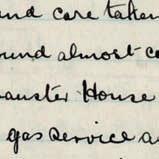 and care taken
ound almost co
auster House
gas service a